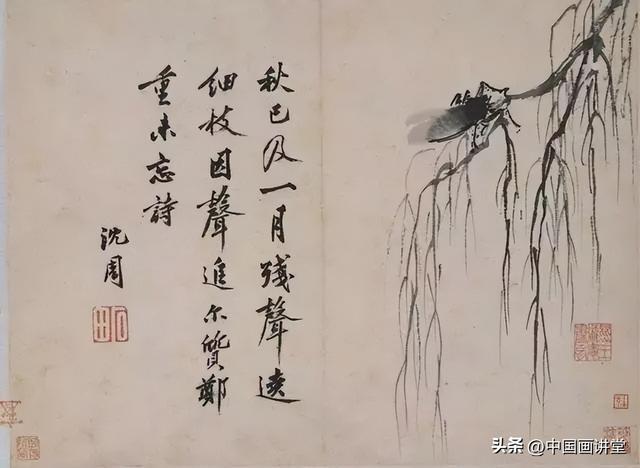 秋已及一月殘聲遶
細枝因聲進尓質鄭
重未忘詩
沈周
石田
头条 @中国画讲堂